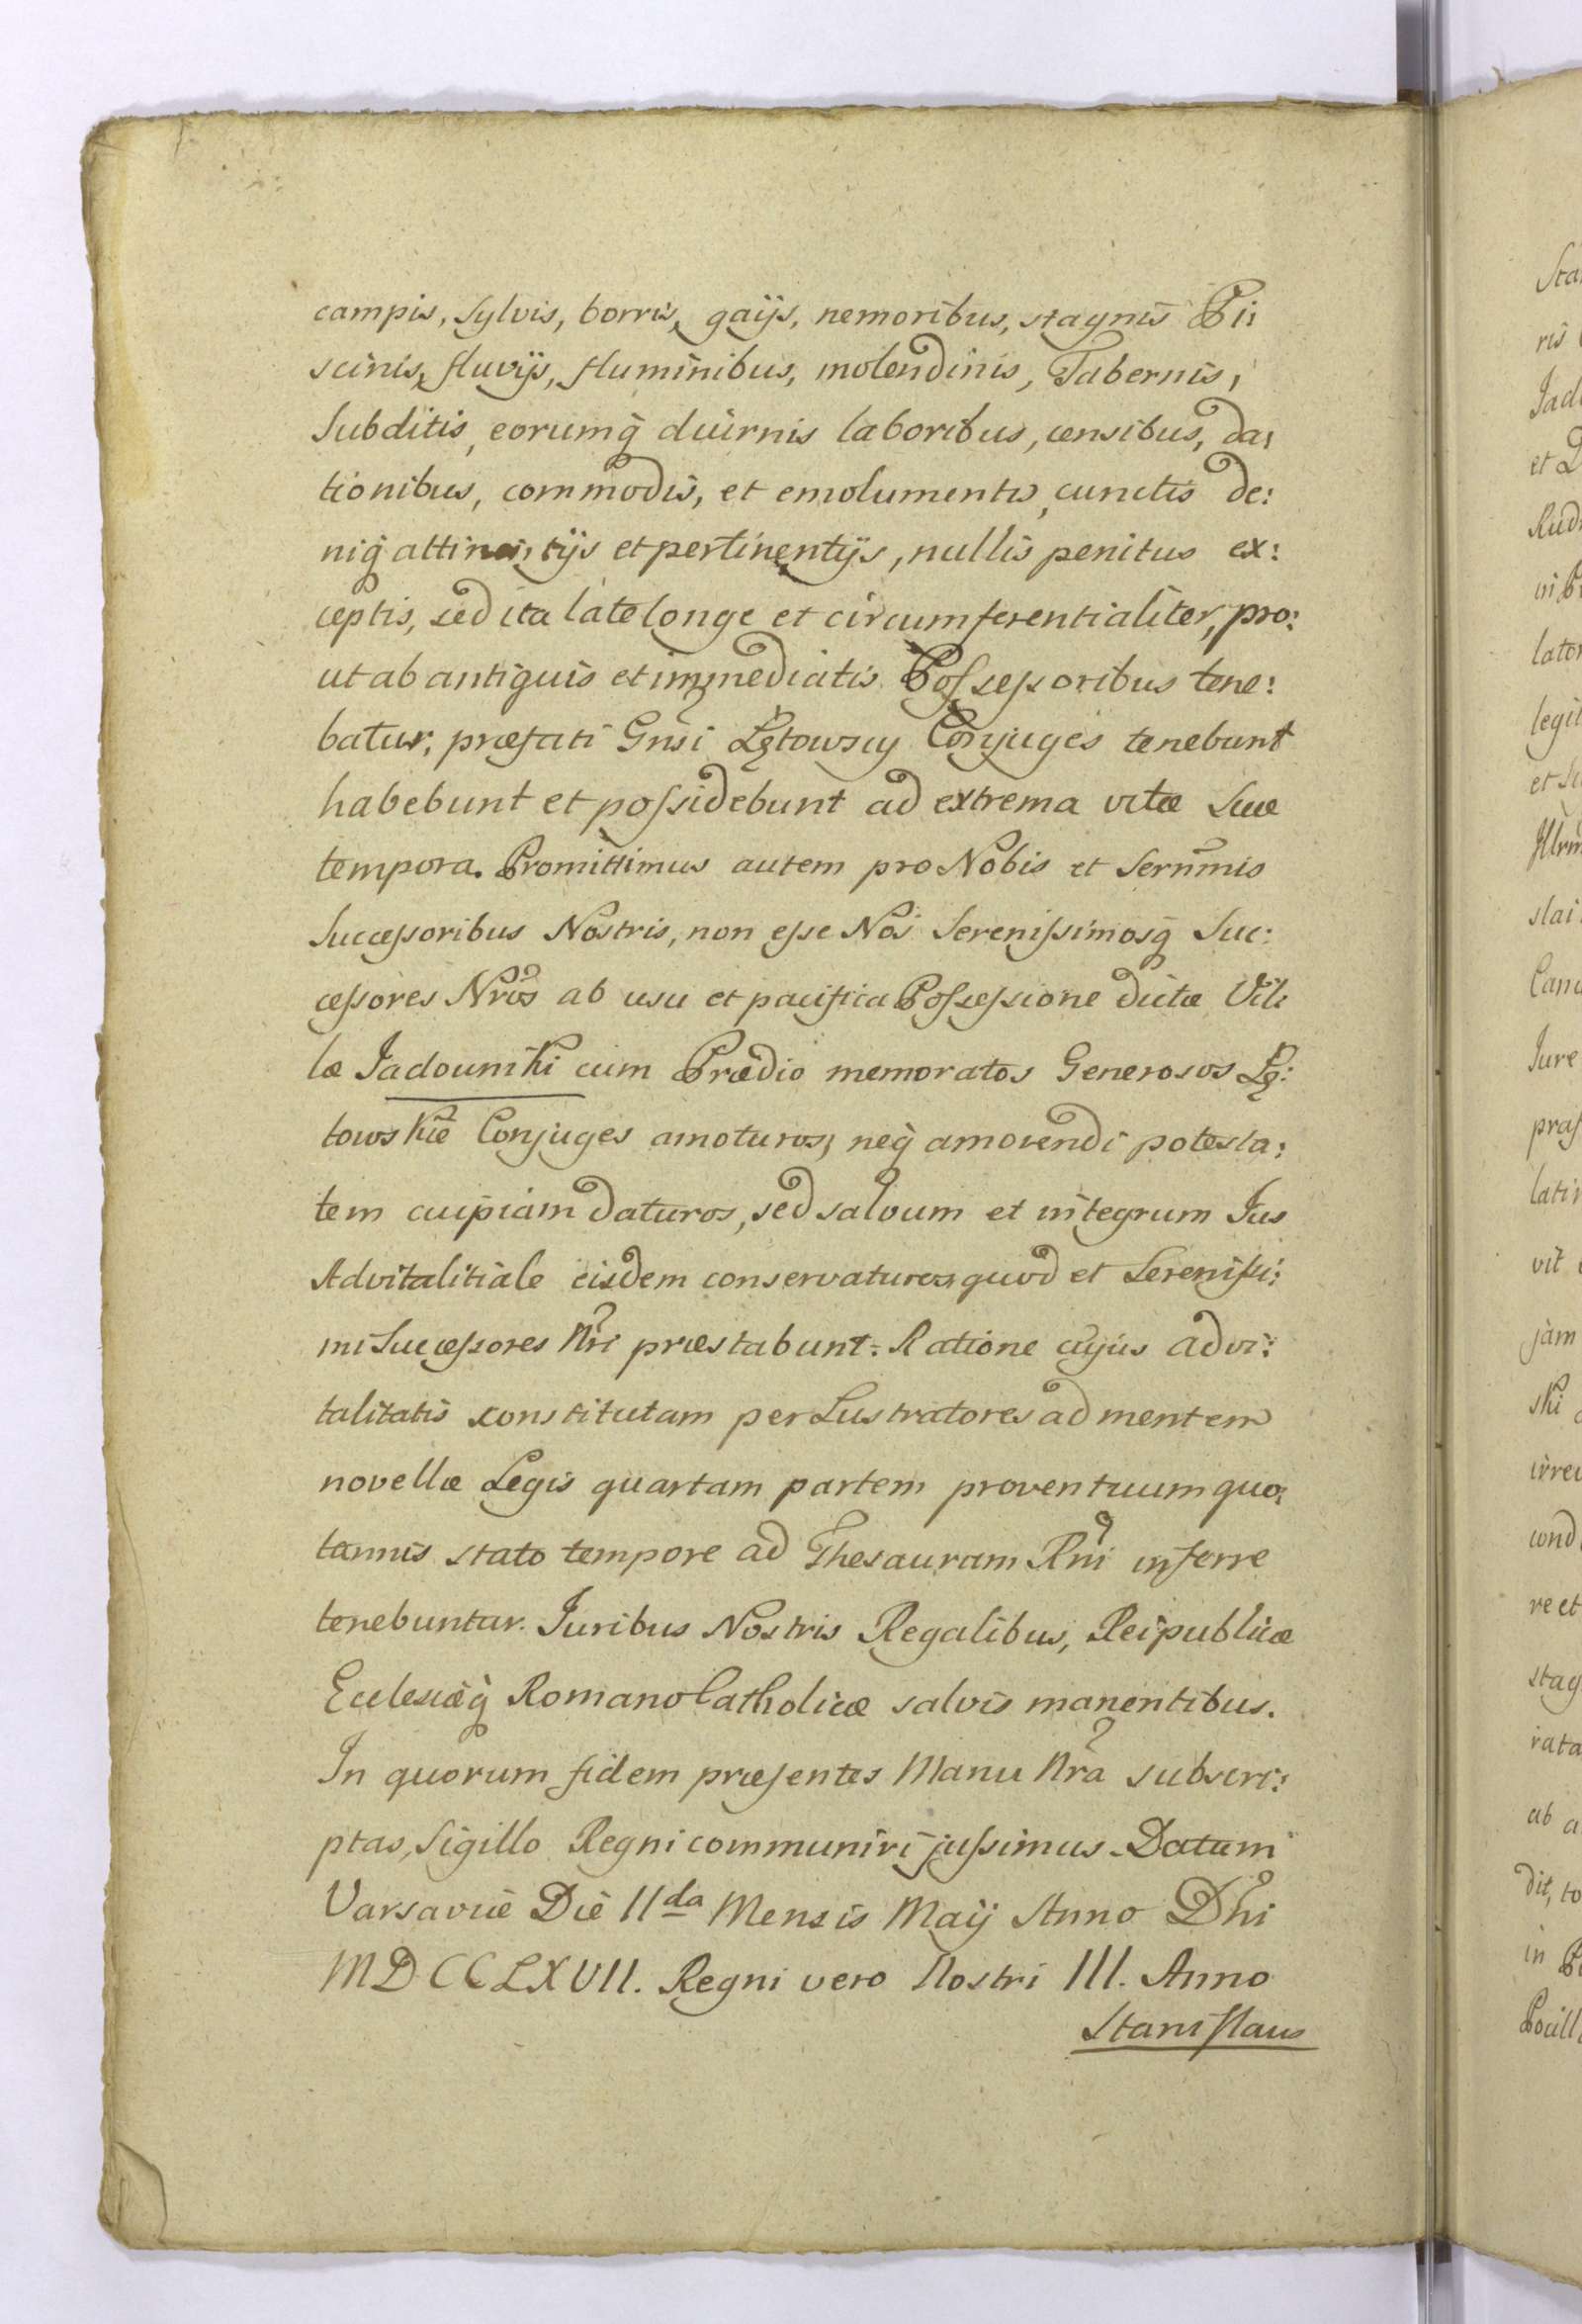 campis, Sylvis, borris, gaijs, nemoribus, stagnis Pi:
scinis, fluvijs, fluminibus, molendinis, Tabernis,
Subditis, eorumq̃ diurnis laboribus, censibus, da:
tionibus, commodis, et emolumentis, cunctis de:
niq̃ attinentijs et pertinentijs, nullis penitus ex:
ceptis, sed ita late longe et circumferentialiter, pro:
ut ab antiquis et immediatis Poſseſsoribus tene:
batur, præfati Gnsi Łętowscy Conjuges tenebunt
habebunt et poſsidebunt ad extrema vitæ Suæ
tempora. Promittimus autem pro Nobis et Sernm̃is
Succeſsoribus Nostris, non eſse Nos Sereniſsimosq̃ Suc:
ceſsores Nrõs ab usu et pacifica Poſseſsione dictæ Vil:
læ Jadowniki cum Prædio memoratos Generosos Łę:
towskie Conjuges amoturos, neq̃ amovendi potesta:
tem cuipiam daturos, sed salvum et integrum Jus
Advitalitiale eisdem conservaturos, quod et Sereniſsi:
mi Succeſsores Nr̃i præstabunt. Ratione cujus advi:
talitatis constitutam per Lustratores ad mentem
novellæ Legis quartam partem proventuum quo:
tannis stato tempore ad Thesauram Rñi inferre
tenebuntar. Juribus Nostris Regalibus, Reipublicæ
Ecclesiæq̃ Romano Catholicæ salvis manentibus.
In quorum fidem præsentes Manu Nr̃a subscri:
ptas, Sigillo Regni communiri juſsimus. Datum
Varsaviæ Die 11da Mensis Maij Anno Dñi
MDCCLXVII. Regni vero Nostri III. Anno
Staniſlaus